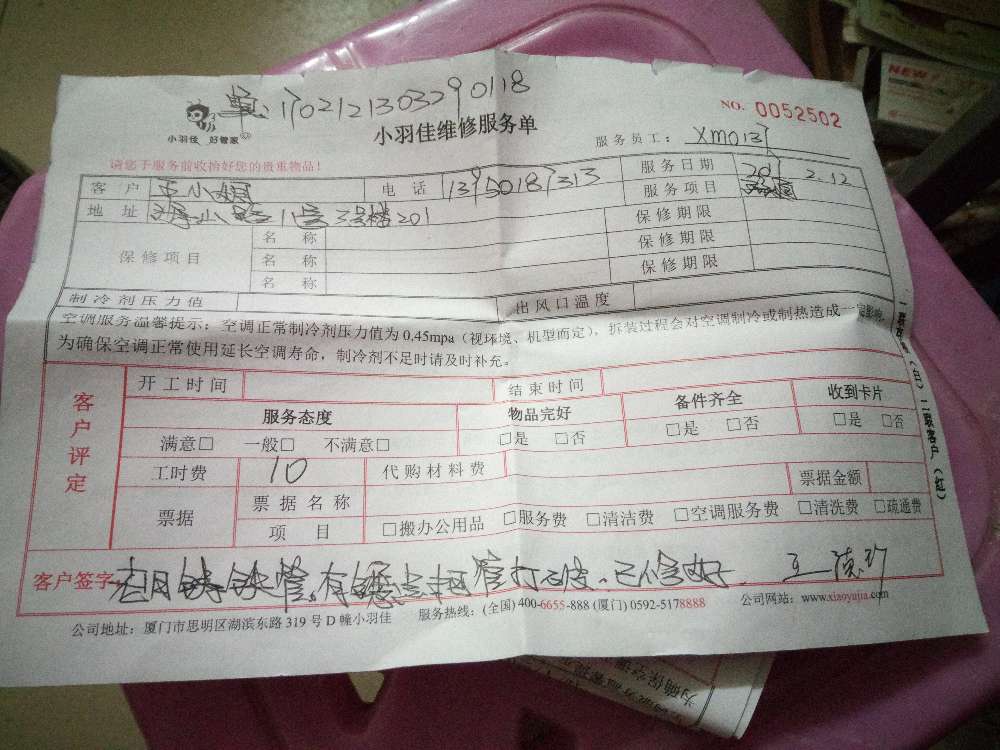 单:170212130329 0118
小羽佳 好管家
小羽佳维修服务单
NO. 0052502
服务员工:
请您于服务前收拾好您的贵重物品!
客 户 王小姐 电 话 13950187313 服务日期 2.12
服务项目
地 址 11号 3号楼201 保修期限
保修项目 名 称 保修期限
名 称 保修期限
名 称
制冷剂压力值 出风口温度
空调服务温馨提示:空调正常制冷剂压力值为0.45mpa(视环境、机型而定),拆装过程会对空调制冷或制热造成一定影响,
为确保空调正常使用延长空调寿命,制冷剂不足时请及时补充。
客户评定
开工时间 结束时间
服务态度 物品完好 备件齐全 收到卡片
满意□ 一般□ 不满意□ □是 □否 □是 □否 □是 □否
工时费 10 代购材料费 票据金额
票据 票据名称
项 目 □搬办公用品 □服务费 □清洁费 □空调服务费 □清洗费 □疏通费
客户签字 管打破、已修好
公司地址:厦门市思明区湖滨东路319号D幢小羽佳 服务热线:(全国)400-6655-888 (厦门) 0592-5178888 公司网站:www.xiaoyujia.com
(白) 二联客户(红)
NEW